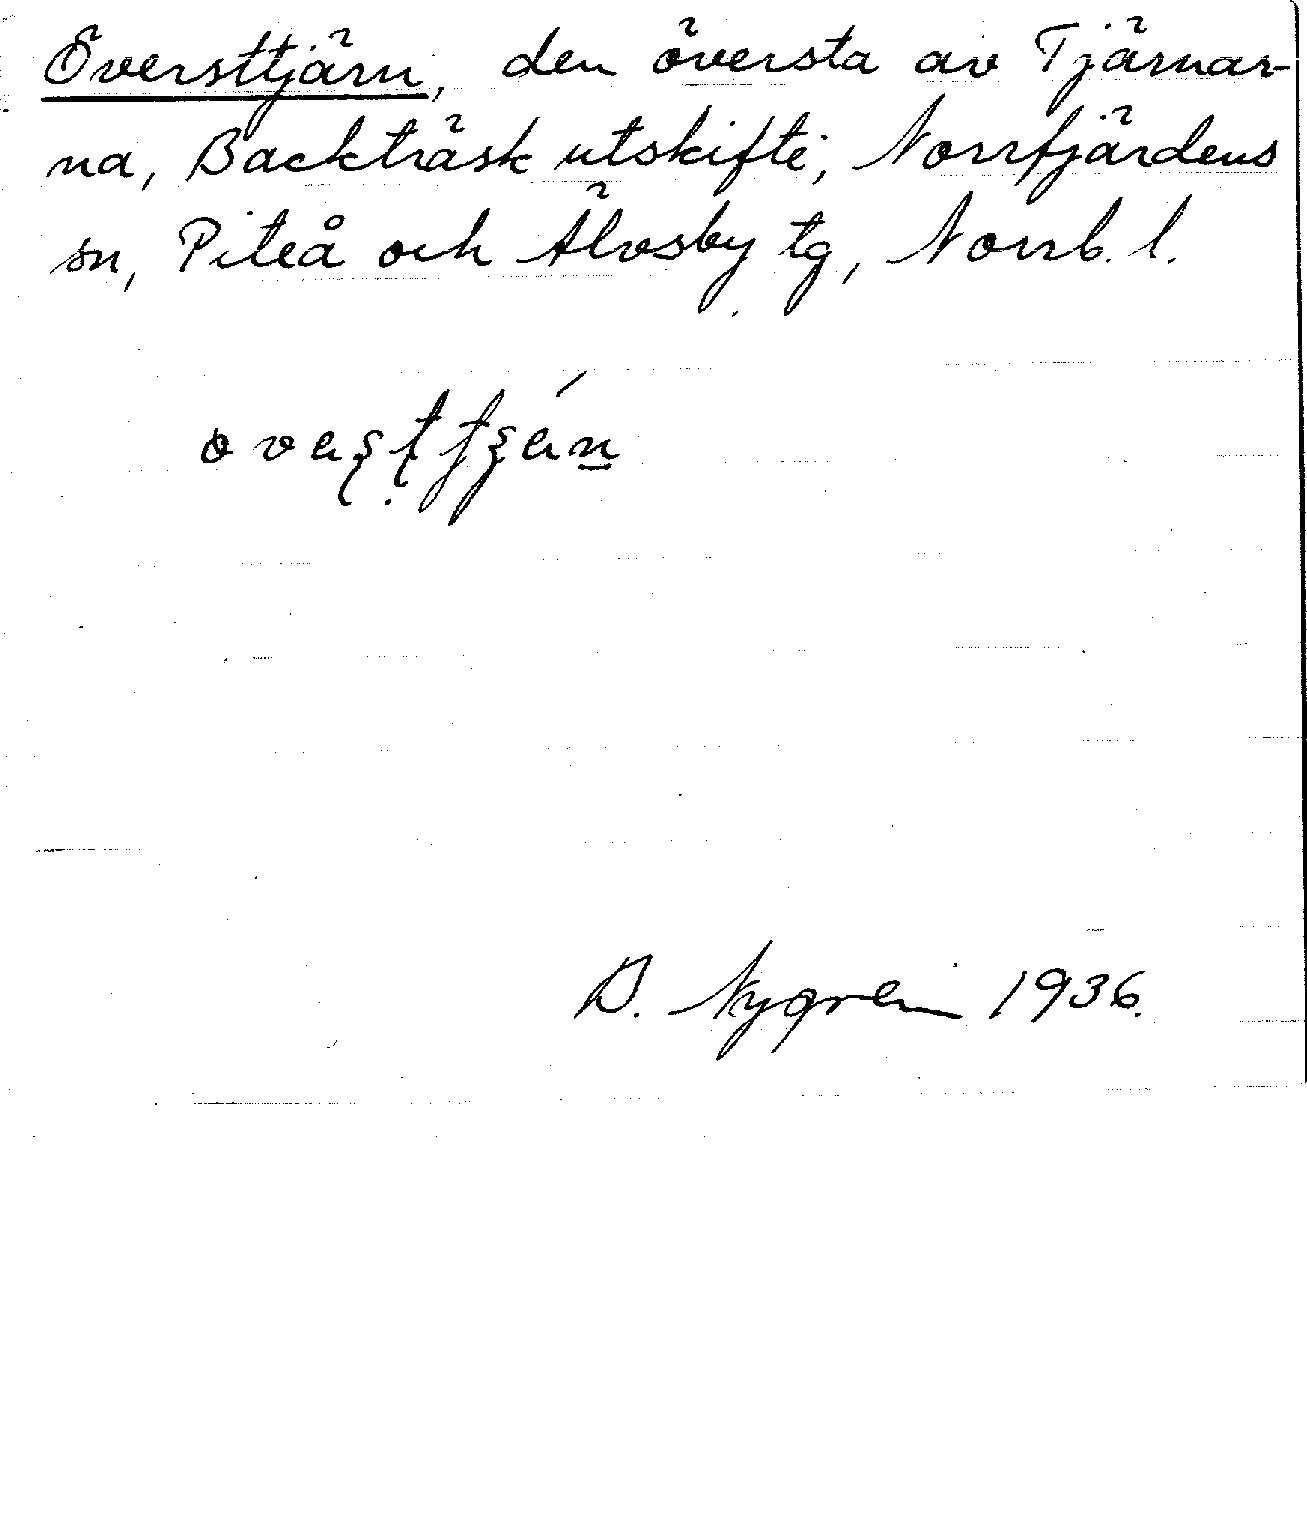 Översttjärn, den översta av Tjärnar-
na, Backträsk utskifte, Norrfjärdens
sn, Piteå och Älvsby tg, Norrb. l.
B. Nygren 1936.